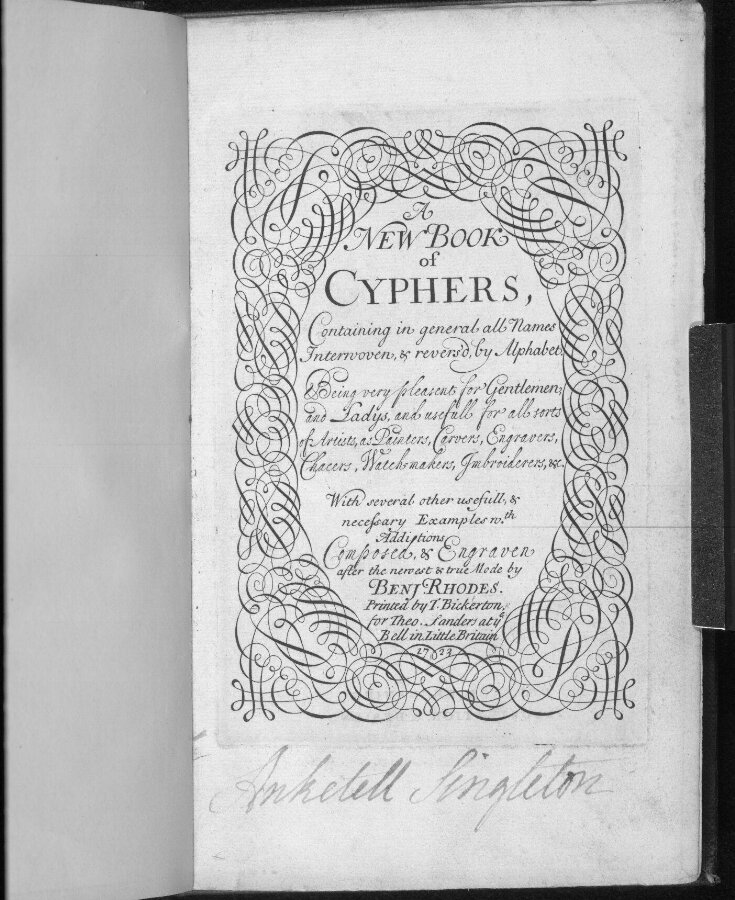 A
NEW BOOK
of
CYPHERS,
Containing in general all Names
Interwoven, & revers'd, by Alphabet.
Being very pleasent for Gentlemen,
and Ladys, and usefull for all sorts
of Artists, as Painters, Carvers, Engravers,
Chacers, Watch-makers, Imbroiderers, &c.
With several other usefull, &
necessary Examples wth
Addistions
Composed, & Engraven
after the newest & true Mode by
BENJ RHODES.
Printed by T. Bickerton,
for Theo. Sanders at ye
Bell in Little Brittain
1723
Anketell Singleton